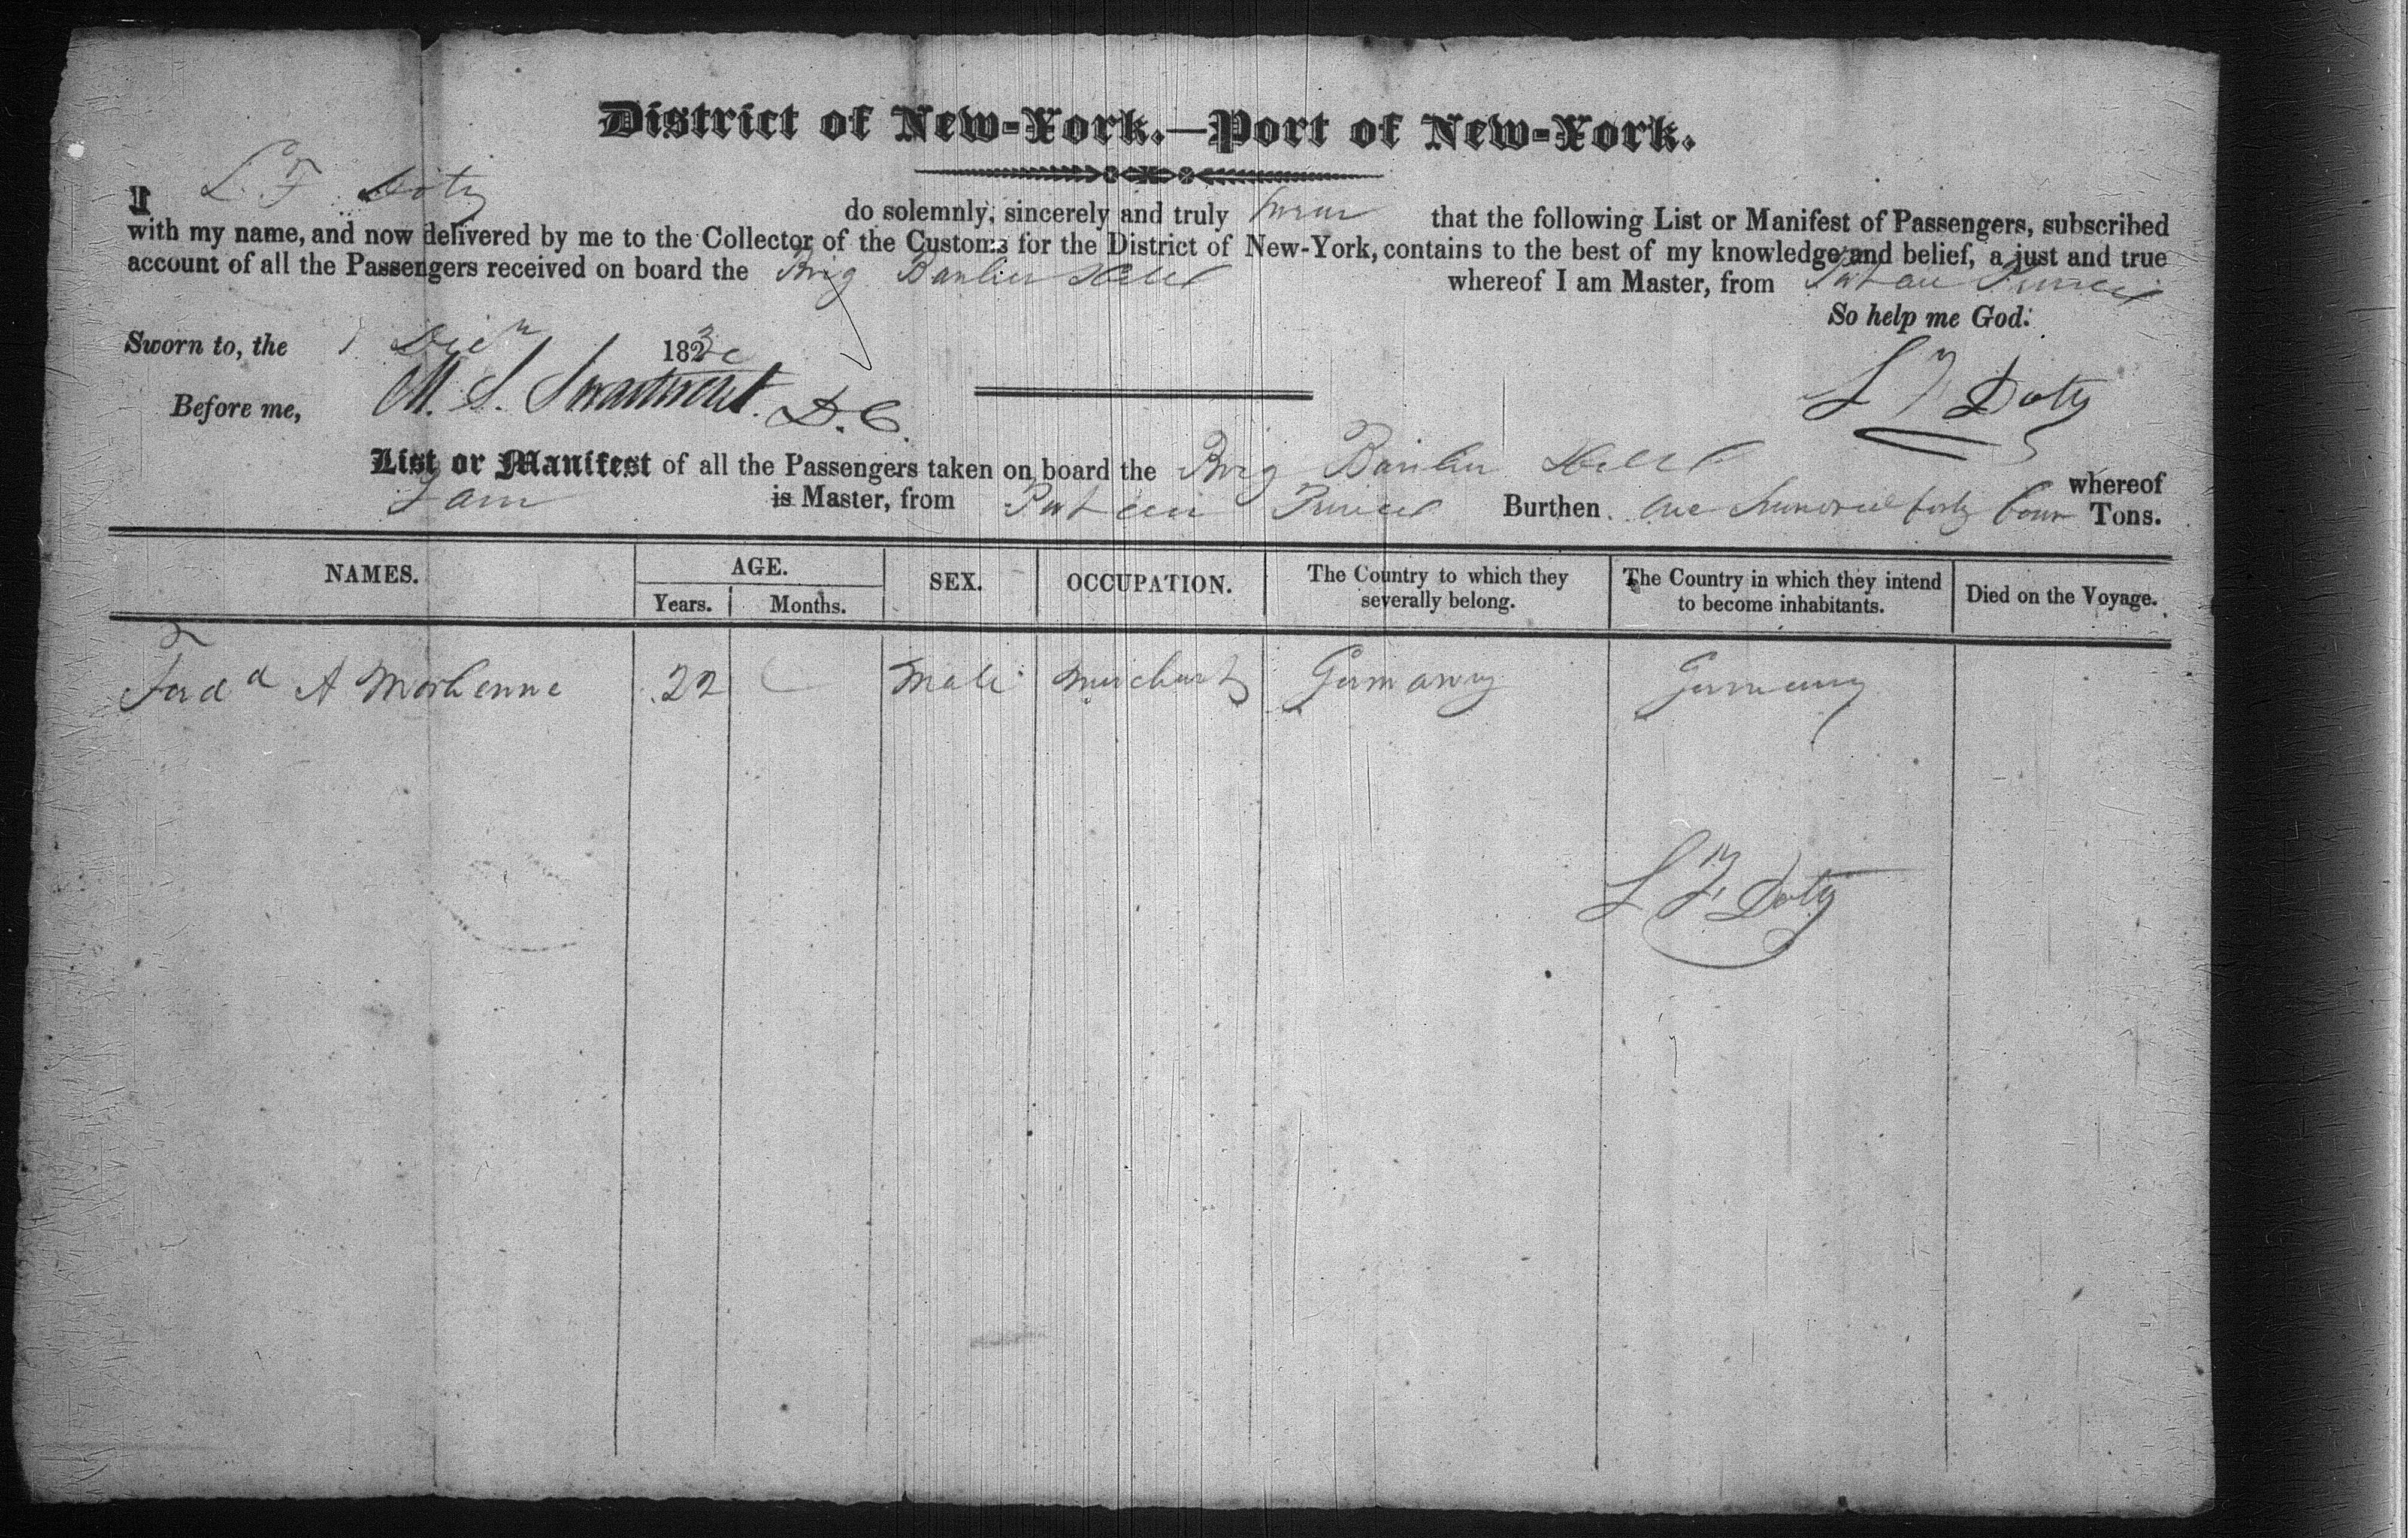 District of New-York.—Port of New-York.
I L. F. Doty do solemnly, sincerely and truly swear that the following List or Manifest of Passengers, subscribed
with my name, and now delivered by me to the Collector of the Customs for the District of New-York, contains to the best of my knowledge and belief, a just and true
account of all the Passengers received on board the Brig Bunker Hill whereof I am Master, from Port au Prince
So help me God.
Sworn to, the 1 Decr 1830
Before me, M. S. Swartwout. D. C. L F Doty
List or Manifest of all the Passengers taken on board the Brig Bunker Hill whereof
I am is Master, from Port au Prince Burthen one hundred forty four Tons.
NAMES. AGE. SEX. OCCUPATION. The Country to which they severally belong. The Country in which they intend to become inhabitants. Died on the Voyage.
Years. Months.
Ferdd A 22 Male Merchant Germany Germany
L F Doty